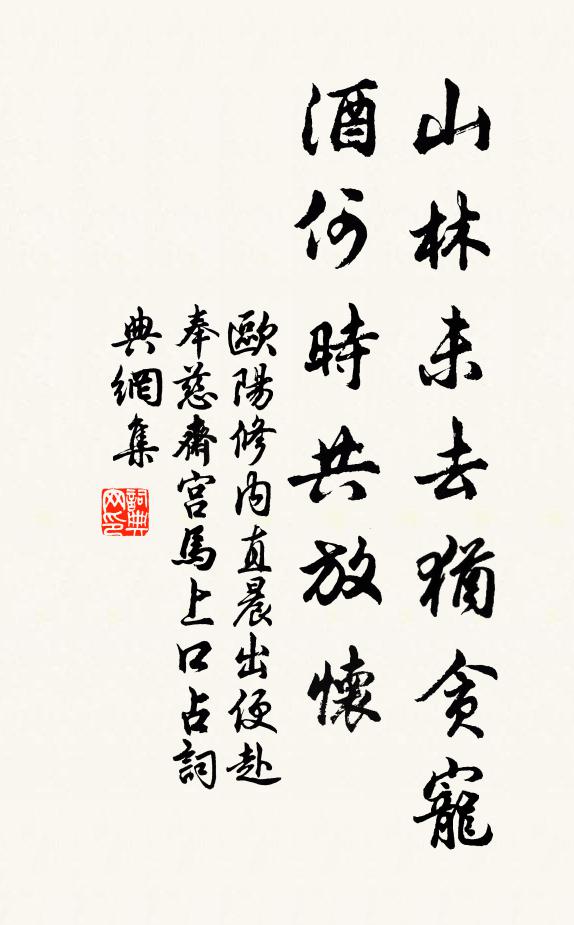 山林未去猶貪寵
酒何時共放懷
歐陽修內直晨出便赴
奉慈齋宮馬上口占詞
典網集
詞典网印